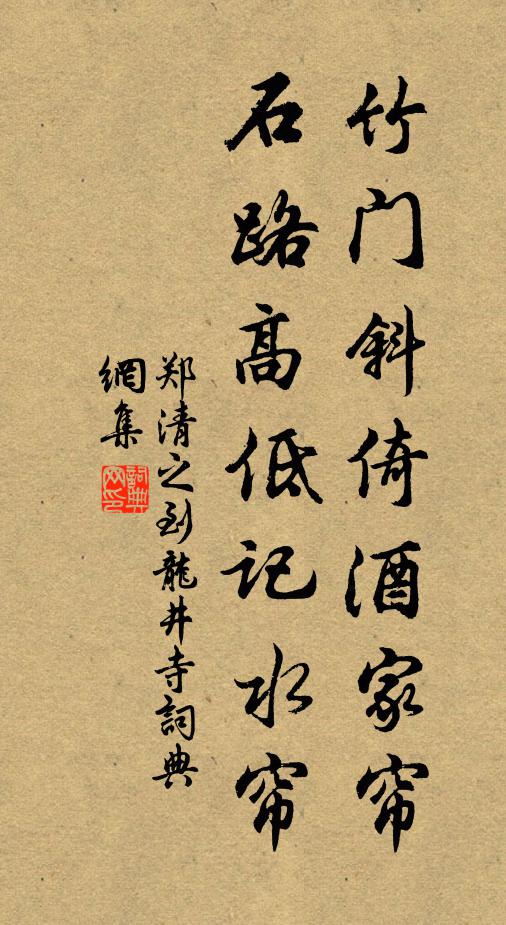 竹门斜倚酒家帘
石路高低记水帘
郑清之到龍井寺詞典
網集
詞典网印